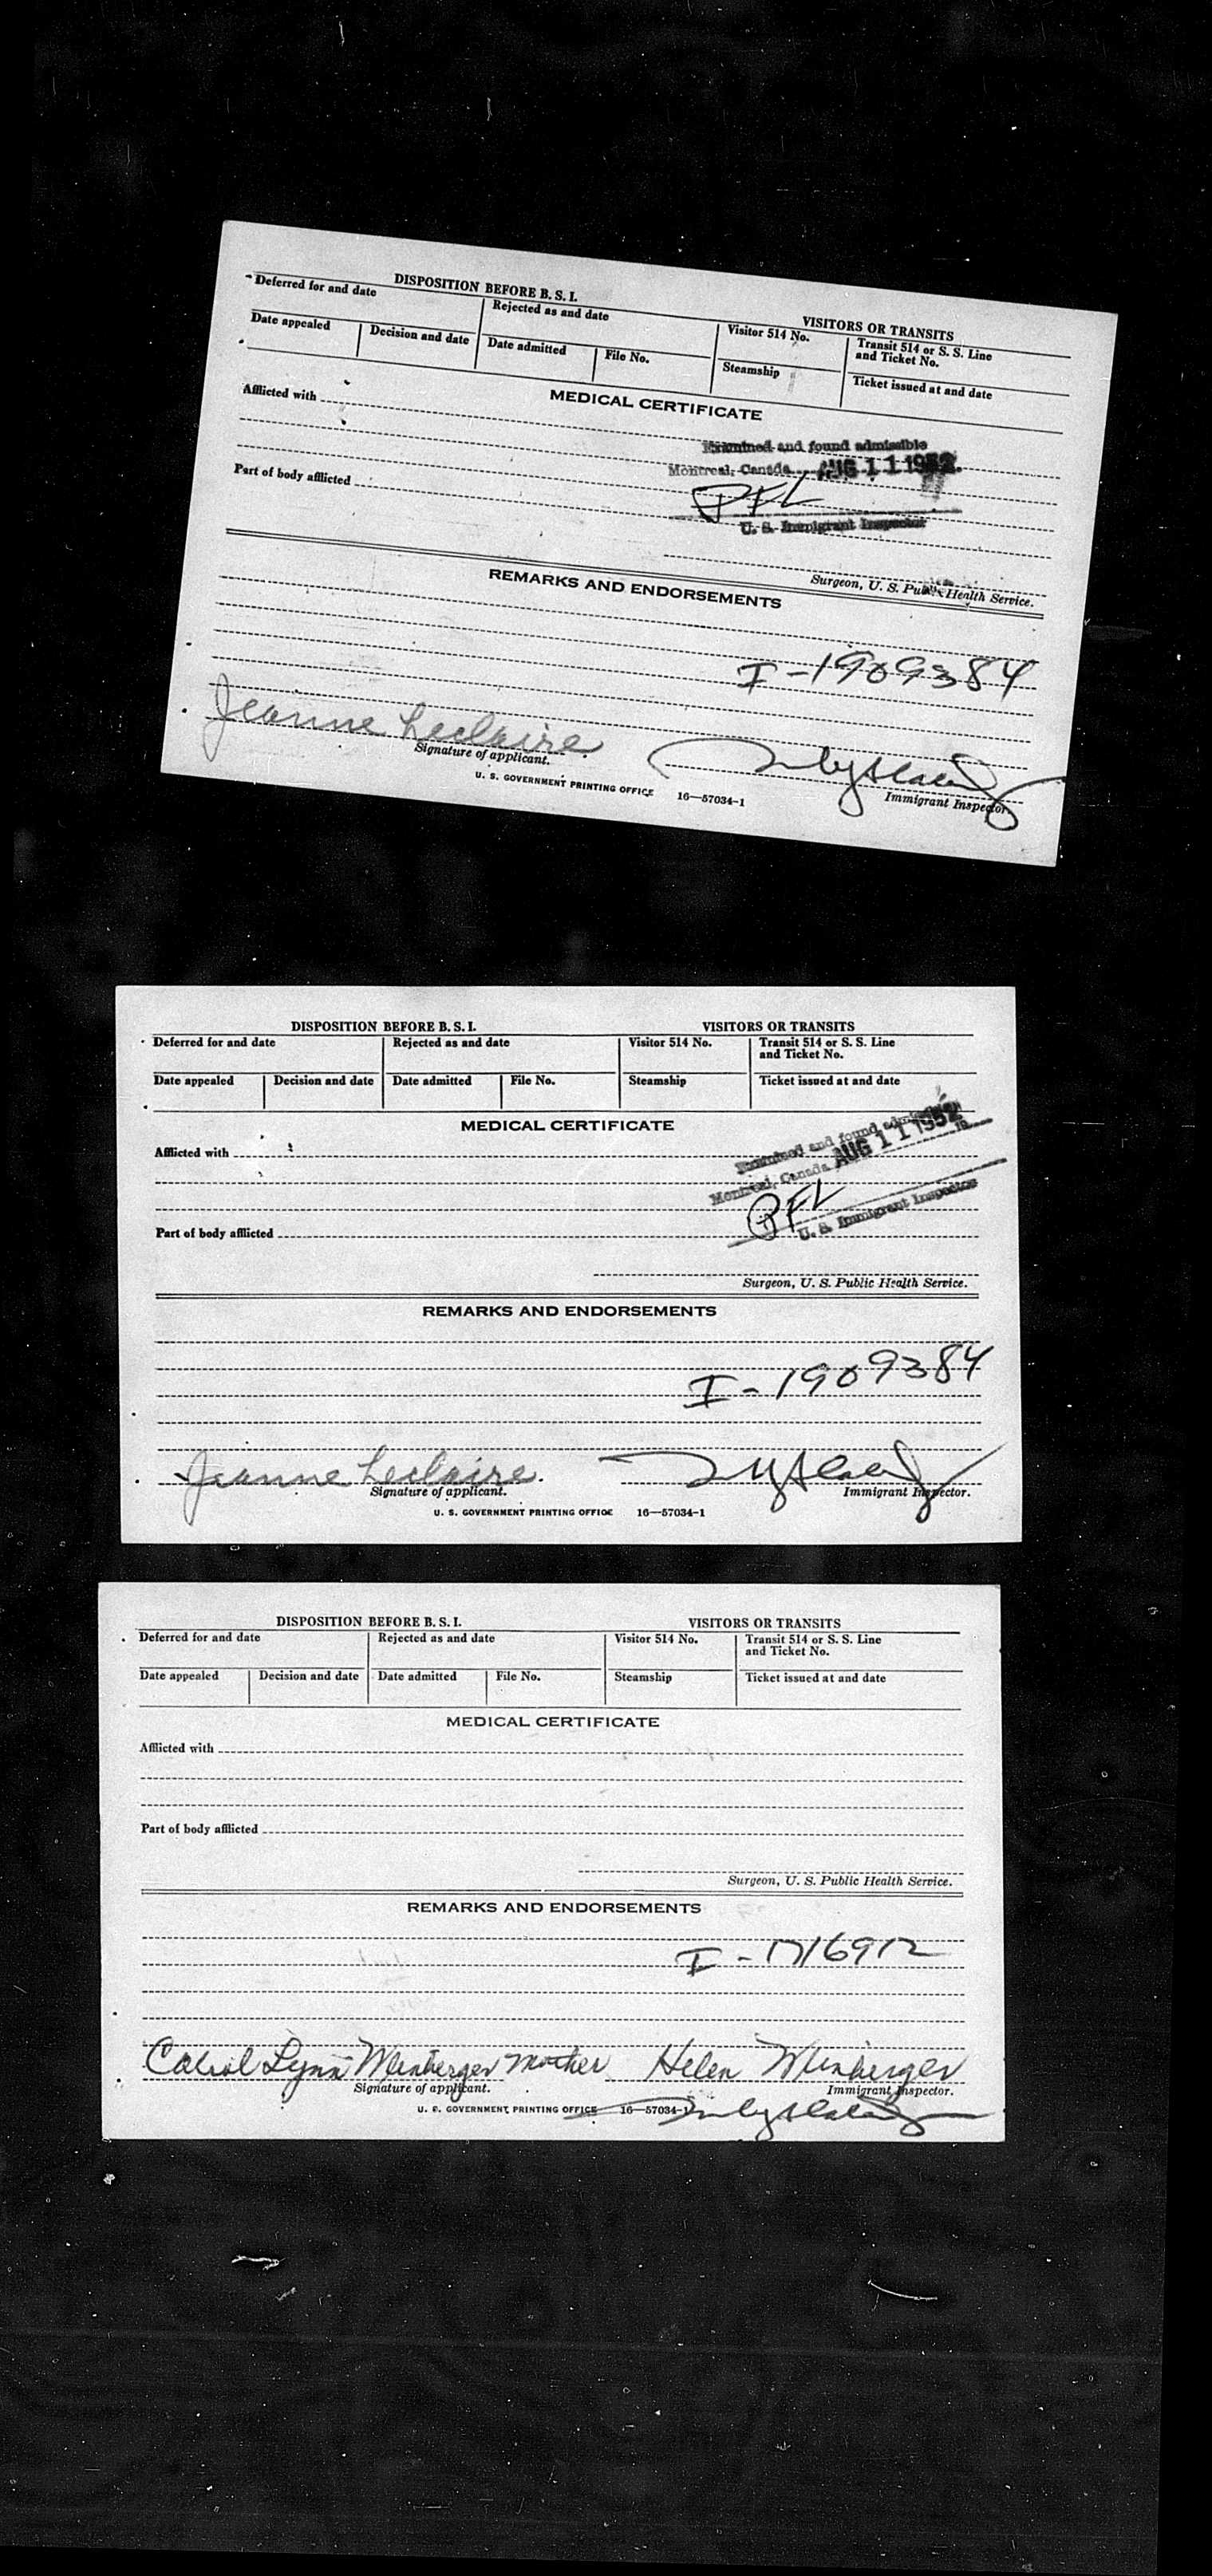 DISPOSITION BEFORE B. S. I.
VISITORS OR TRANSITS
Deferred for and date
Rejected as and date
Visitor 514 No.
Transit 514 or S. S. Line
and Ticket No.
Date appealed
Decision and date
Date admitted
File No.
Steamship
Ticket issued at and date
MEDICAL CERTIFICATE
Afflicted with
Examined and found admissible
Montreal, Canada AUG 11 1952
Part of body afflicted
PFL
U. S. Immigrant Inspector
Surgeon, U. S. Public Health Service.
REMARKS AND ENDORSEMENTS
I-1909384
Jeanne Leclaire
Signature of applicant.
Immigrant Inspector.
U. S. GOVERNMENT PRINTING OFFICE 16—57034-1
DISPOSITION BEFORE B. S. I.
VISITORS OR TRANSITS
Deferred for and date
Rejected as and date
Visitor 514 No.
Transit 514 or S. S. Line
and Ticket No.
Date appealed
Decision and date
Date admitted
File No.
Steamship
Ticket issued at and date
MEDICAL CERTIFICATE
Afflicted with
Examined and found admissible
Montreal, Canada AUG 11 1952 19
Part of body afflicted
PFL
U. S. Immigrant Inspector
Surgeon, U. S. Public Health Service.
REMARKS AND ENDORSEMENTS
I-1909384
Jeanne Leclaire.
Signature of applicant.
Immigrant Inspector.
U. S. GOVERNMENT PRINTING OFFICE 16—57034-1
DISPOSITION BEFORE B. S. I.
VISITORS OR TRANSITS
Deferred for and date
Rejected as and date
Visitor 514 No.
Transit 514 or S. S. Line
and Ticket No.
Date appealed
Decision and date
Date admitted
File No.
Steamship
Ticket issued at and date
MEDICAL CERTIFICATE
Afflicted with
Part of body afflicted
Surgeon, U. S. Public Health Service.
REMARKS AND ENDORSEMENTS
I-1716912
Lynn mother Helen
Signature of applicant.
Immigrant Inspector.
U. S. GOVERNMENT PRINTING OFFICE 16—57034-1